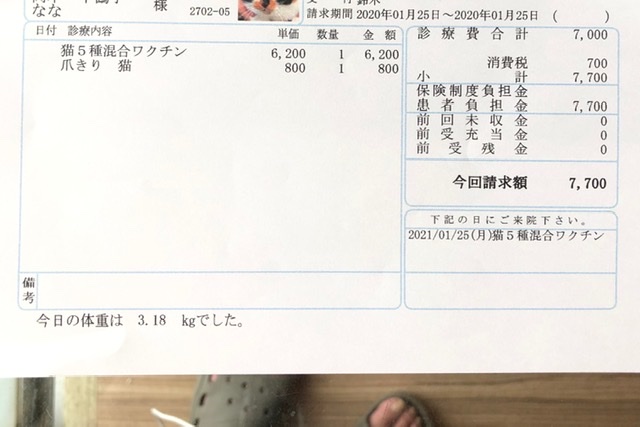 なな 様 2702-05
請求期間 2020年01月25日～2020年01月25日 ( )
日付 診療内容 単価 数量 金額
猫５種混合ワクチン 6,200 1 6,200
爪きり 猫 800 1 800
診療費合計 7,000
消費税 700
小計 7,700
保険制度負担金
患者負担金 7,700
前回未収金 0
前受充当金 0
前受残金 0
今回請求額 7,700
下記の日にご来院下さい。
2021/01/25(月)猫５種混合ワクチン
備考
今日の体重は 3.18 kgでした。